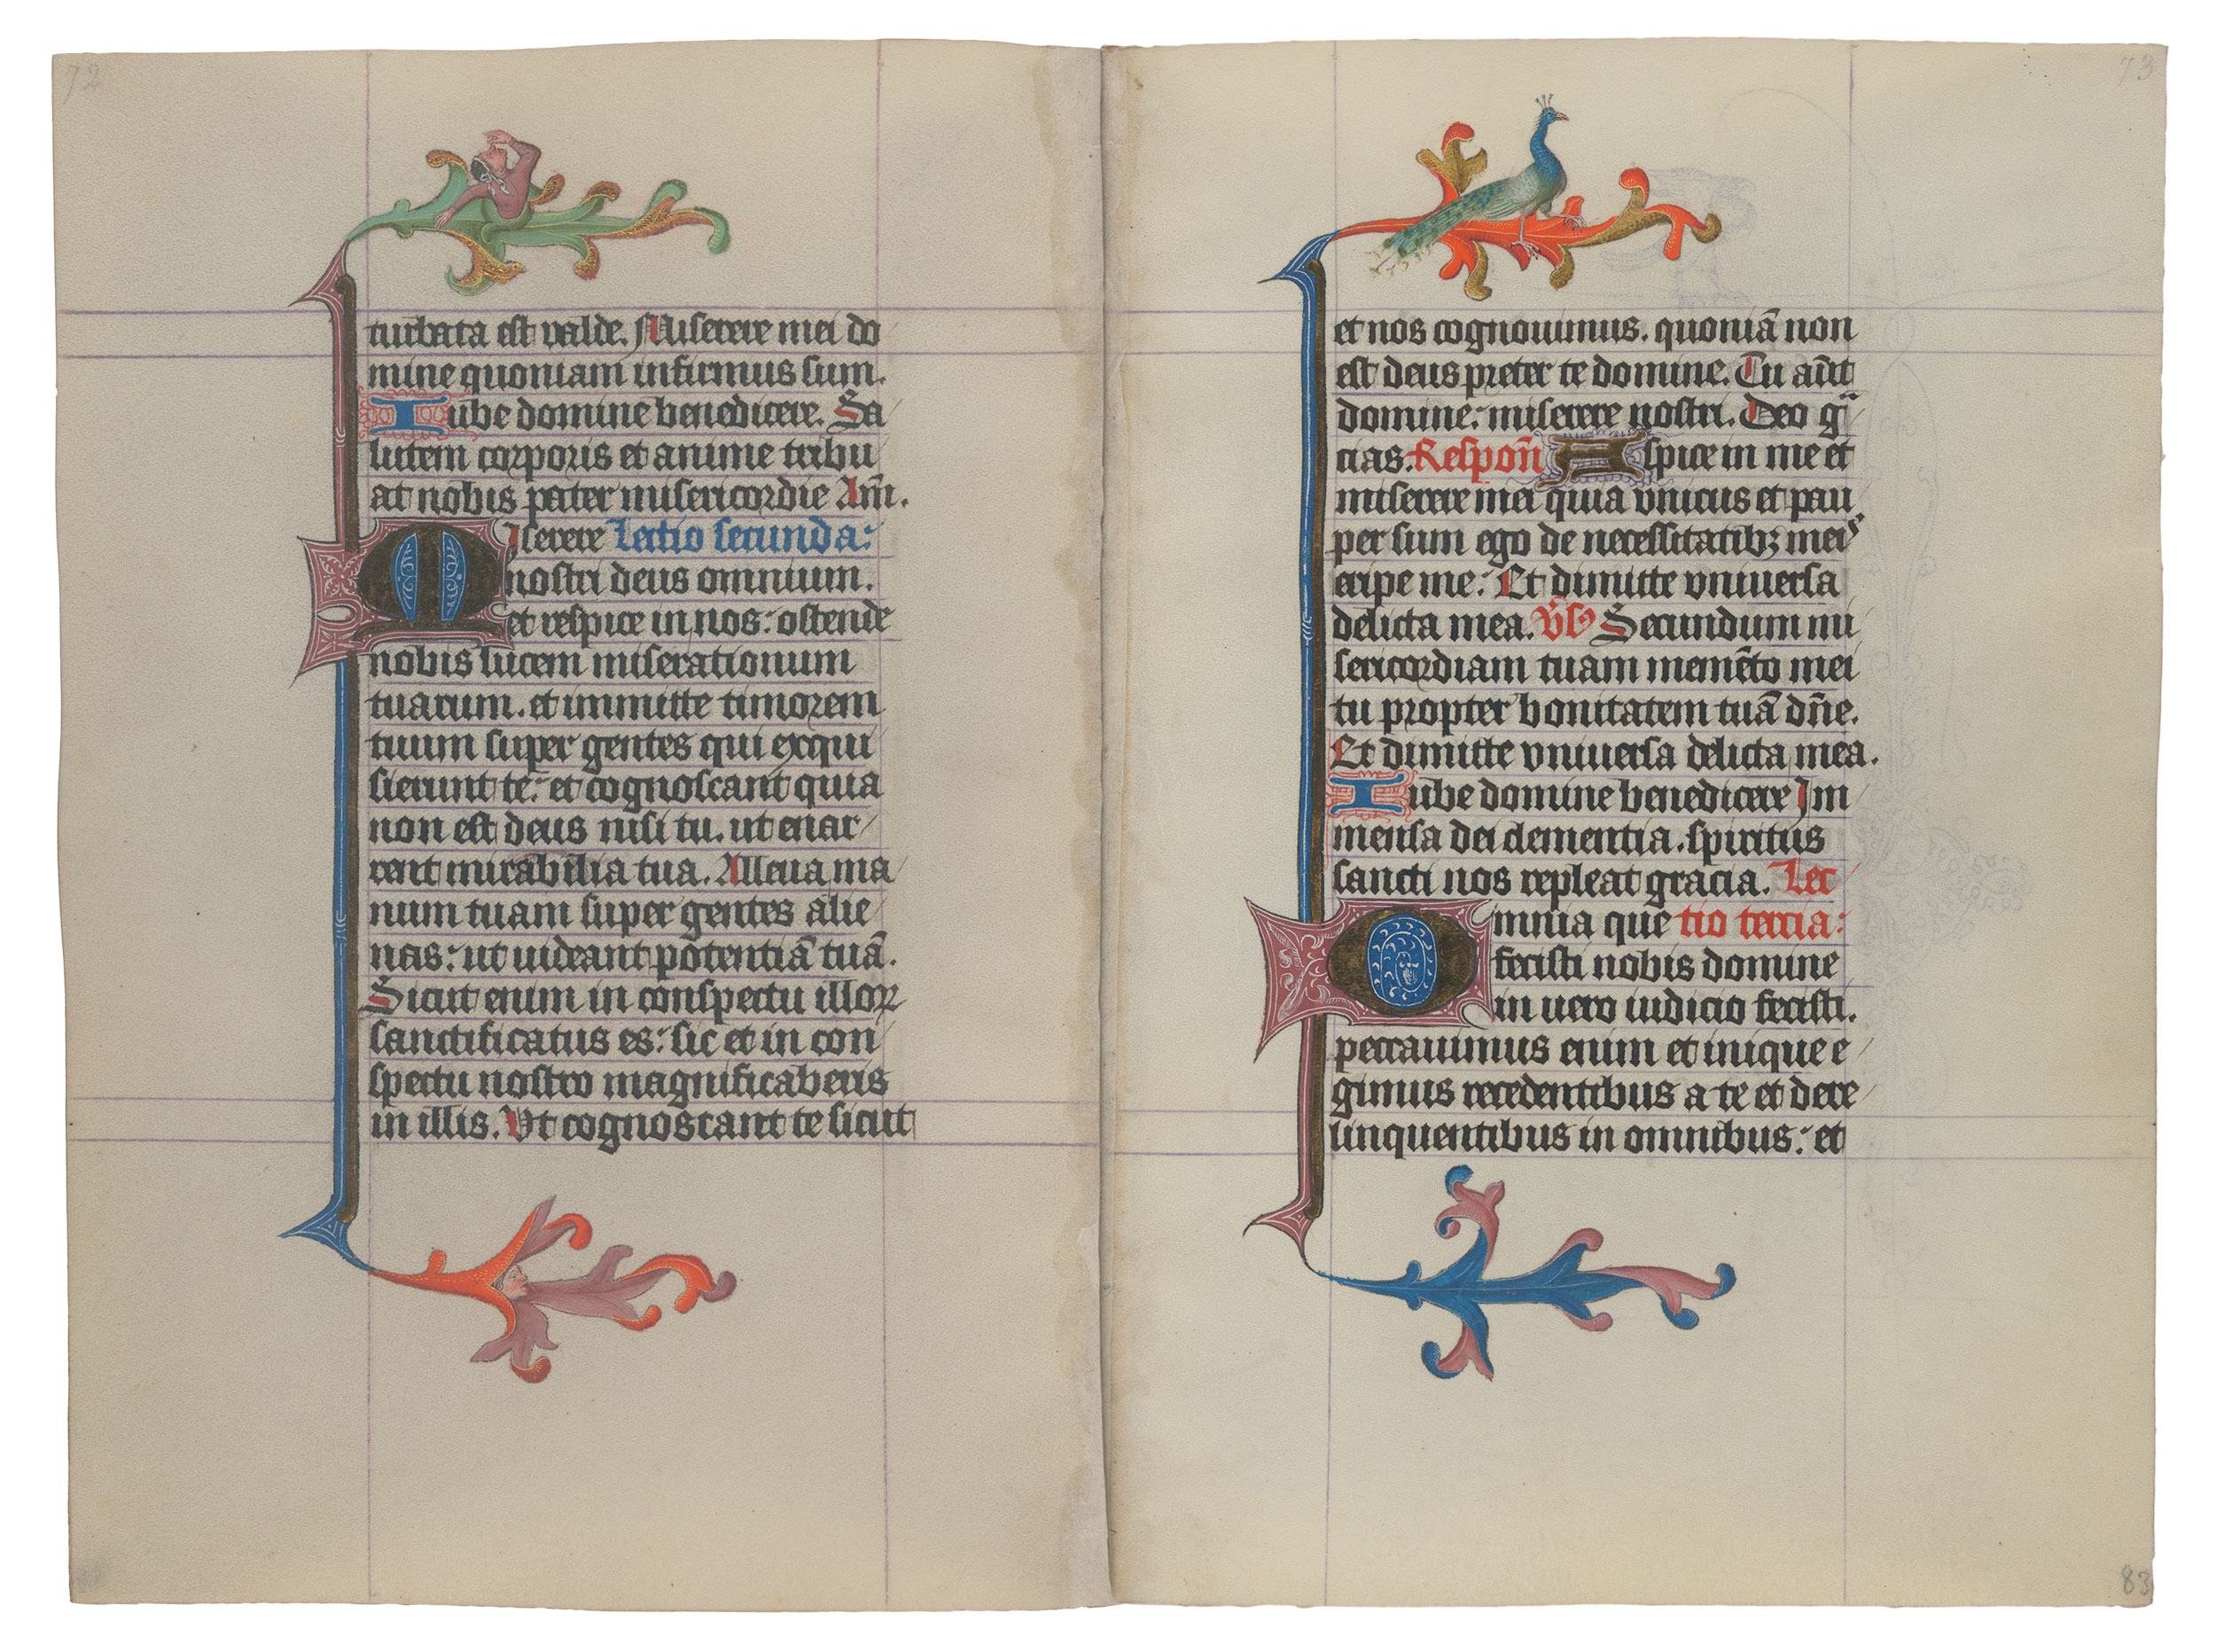 72
turbata est valde. Miserere mei do
mine quoniam infirmus sum.
Iube domine benedicere. Sa
lutem corporis et anime tribu
at nobis pater misericordie Am̄.
Miserere Lectio secunda:
nostri deus omnium.
et respice in nos: ostende
nobis lucem miserationum
tuarum. et immitte timorem
tuum super gentes qui exqui
sierunt te: et cognoscant quia
non est deus nisi tu. ut enar
rent mirabilia tua. Alleua ma
num tuam super gentes alie
nas: ut uideant potentiā tuā.
Sicut enim in conspectu illoꝝ
sanctificatus es: sic et in con
spectu nostro magnificaberis
in illis. Vt cognoscant te sicut
73
et nos cognouimus. quoniā non
est deus preter te domine. Tu aūt
domine: miserere nostri. Deo gᵃ
cias. Respoñ Aspice in me et
miserere mei quia vnicus et pau
per sum ego de necessitatibꝫ meiˢ
eripe me: Et dimitte vniuersa
delicta mea. V̄s Secundum mi
sericordiam tuam memēto mei
tu propter bonitatem tuā dn̄e.
Et dimitte vniuersa delicta mea.
Iube domine benedicere Im
mensa dei clementia. spiritus
sancti nos repleat gracia. Lec
Omnia que tio tercia:
fecisti nobis domine
in uero iudicio fecisti.
peccauimus enim et inique e
gimus recedentibus a te et dere
linquentibus in omnibus: et
83